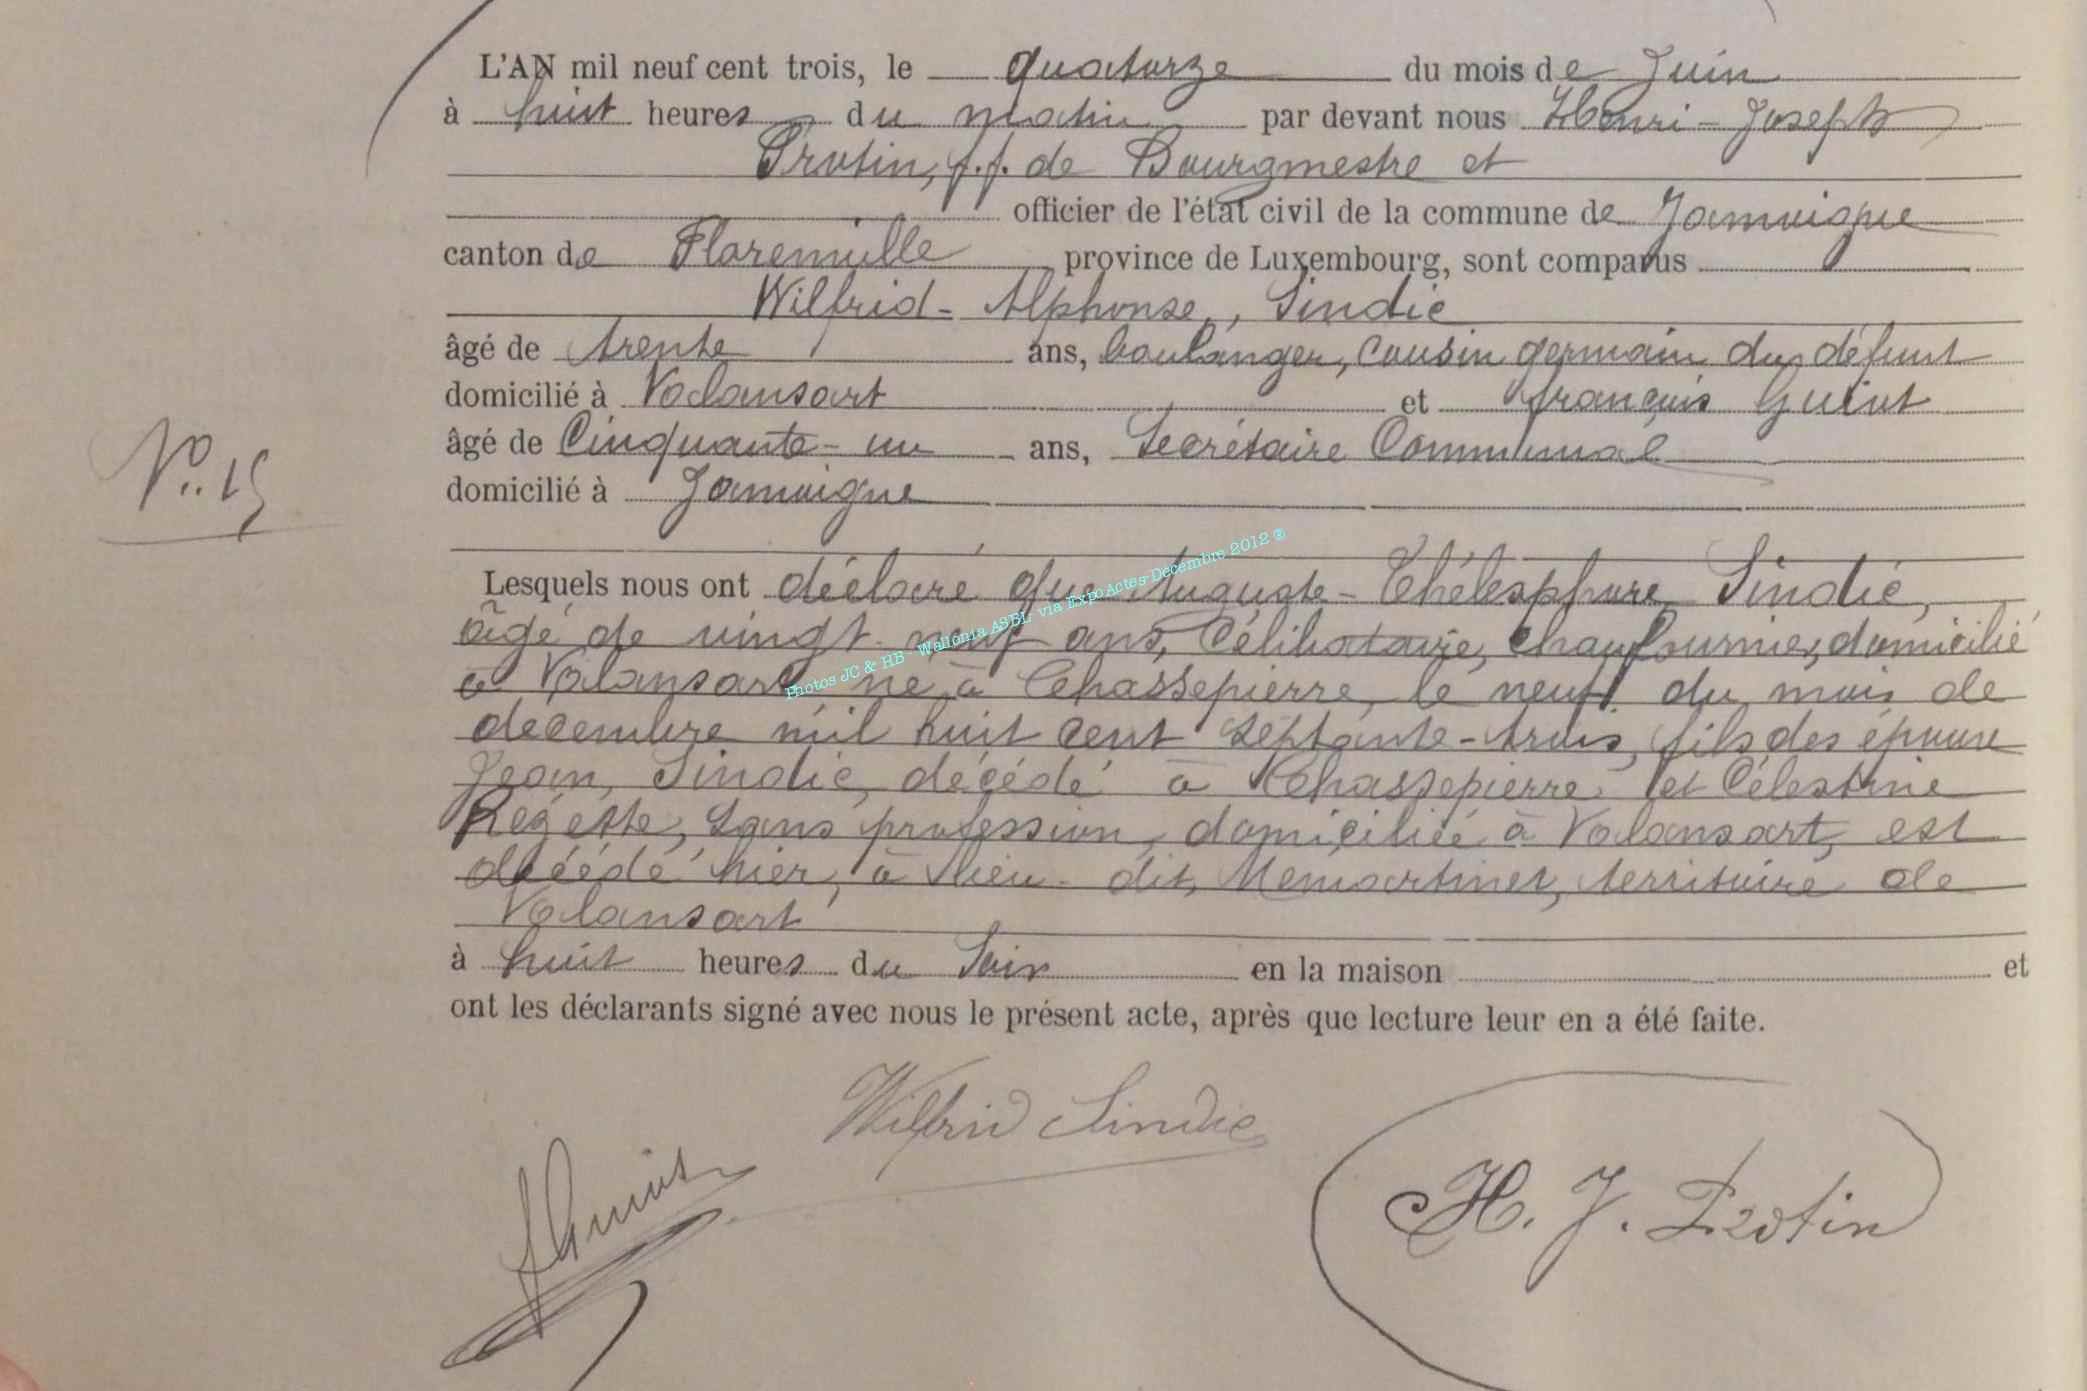 L'AN mil neuf cent trois, le quatorze du mois de Juin
à huit heures du matin par devant nous Henri-Joseph
Protin, f.f. de Bourgmestre et
officier de l'état civil de la commune de Jamoigne
canton de Florenville province de Luxembourg, sont comparus
Wilfrid-Alphonse, Sindic
âgé de trente ans, boulanger, cousin germain du défunt
domicilié à Valansart et François Guiot
âgé de Cinquante-un ans, Secrétaire Communal
domicilié à Jamoigne
N° 15
Lesquels nous ont déclaré que Auguste-Thélesphore Sindic,
âgé de vingt-neuf ans, Célibataire, chaufournier, domicilié
à Valansart, né à Chassepierre, le neuf du mois de
décembre mil huit cent septante-trois, fils des époux
Jean, Sindic, décédé à Chassepierre et Célestine
sans profession, domiciliée à Valansart, est
décédé hier, à lieu-dit, territoire de
Valansart
à huit heures du Soir en la maison et
ont les déclarants signé avec nous le présent acte, après que lecture leur en a été faite.
Wilfrid Sindic
FGuiot
H. J. Protin
Photos JC & HB - Wallonia ASBL via ExpoActes-Décembre 2012 ®